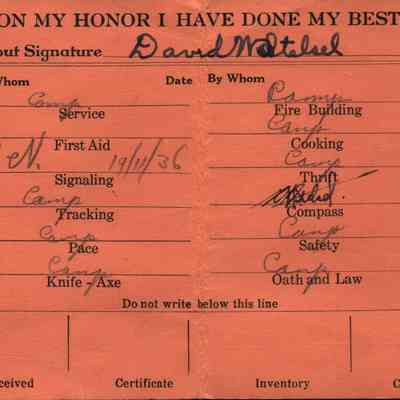 ON MY HONOR I HAVE DONE MY BEST
out Signature David
Whom Date By Whom
Camp Camp
Service Fire Building
Camp
N. First Aid 19/11/36 Cooking
Camp
Signaling Thrift
Camp
Tracking Compass
Camp Camp
Pace Safety
Camp Camp
Knife - Axe Oath and Law
Do not write below this line
ceived Certificate Inventory C